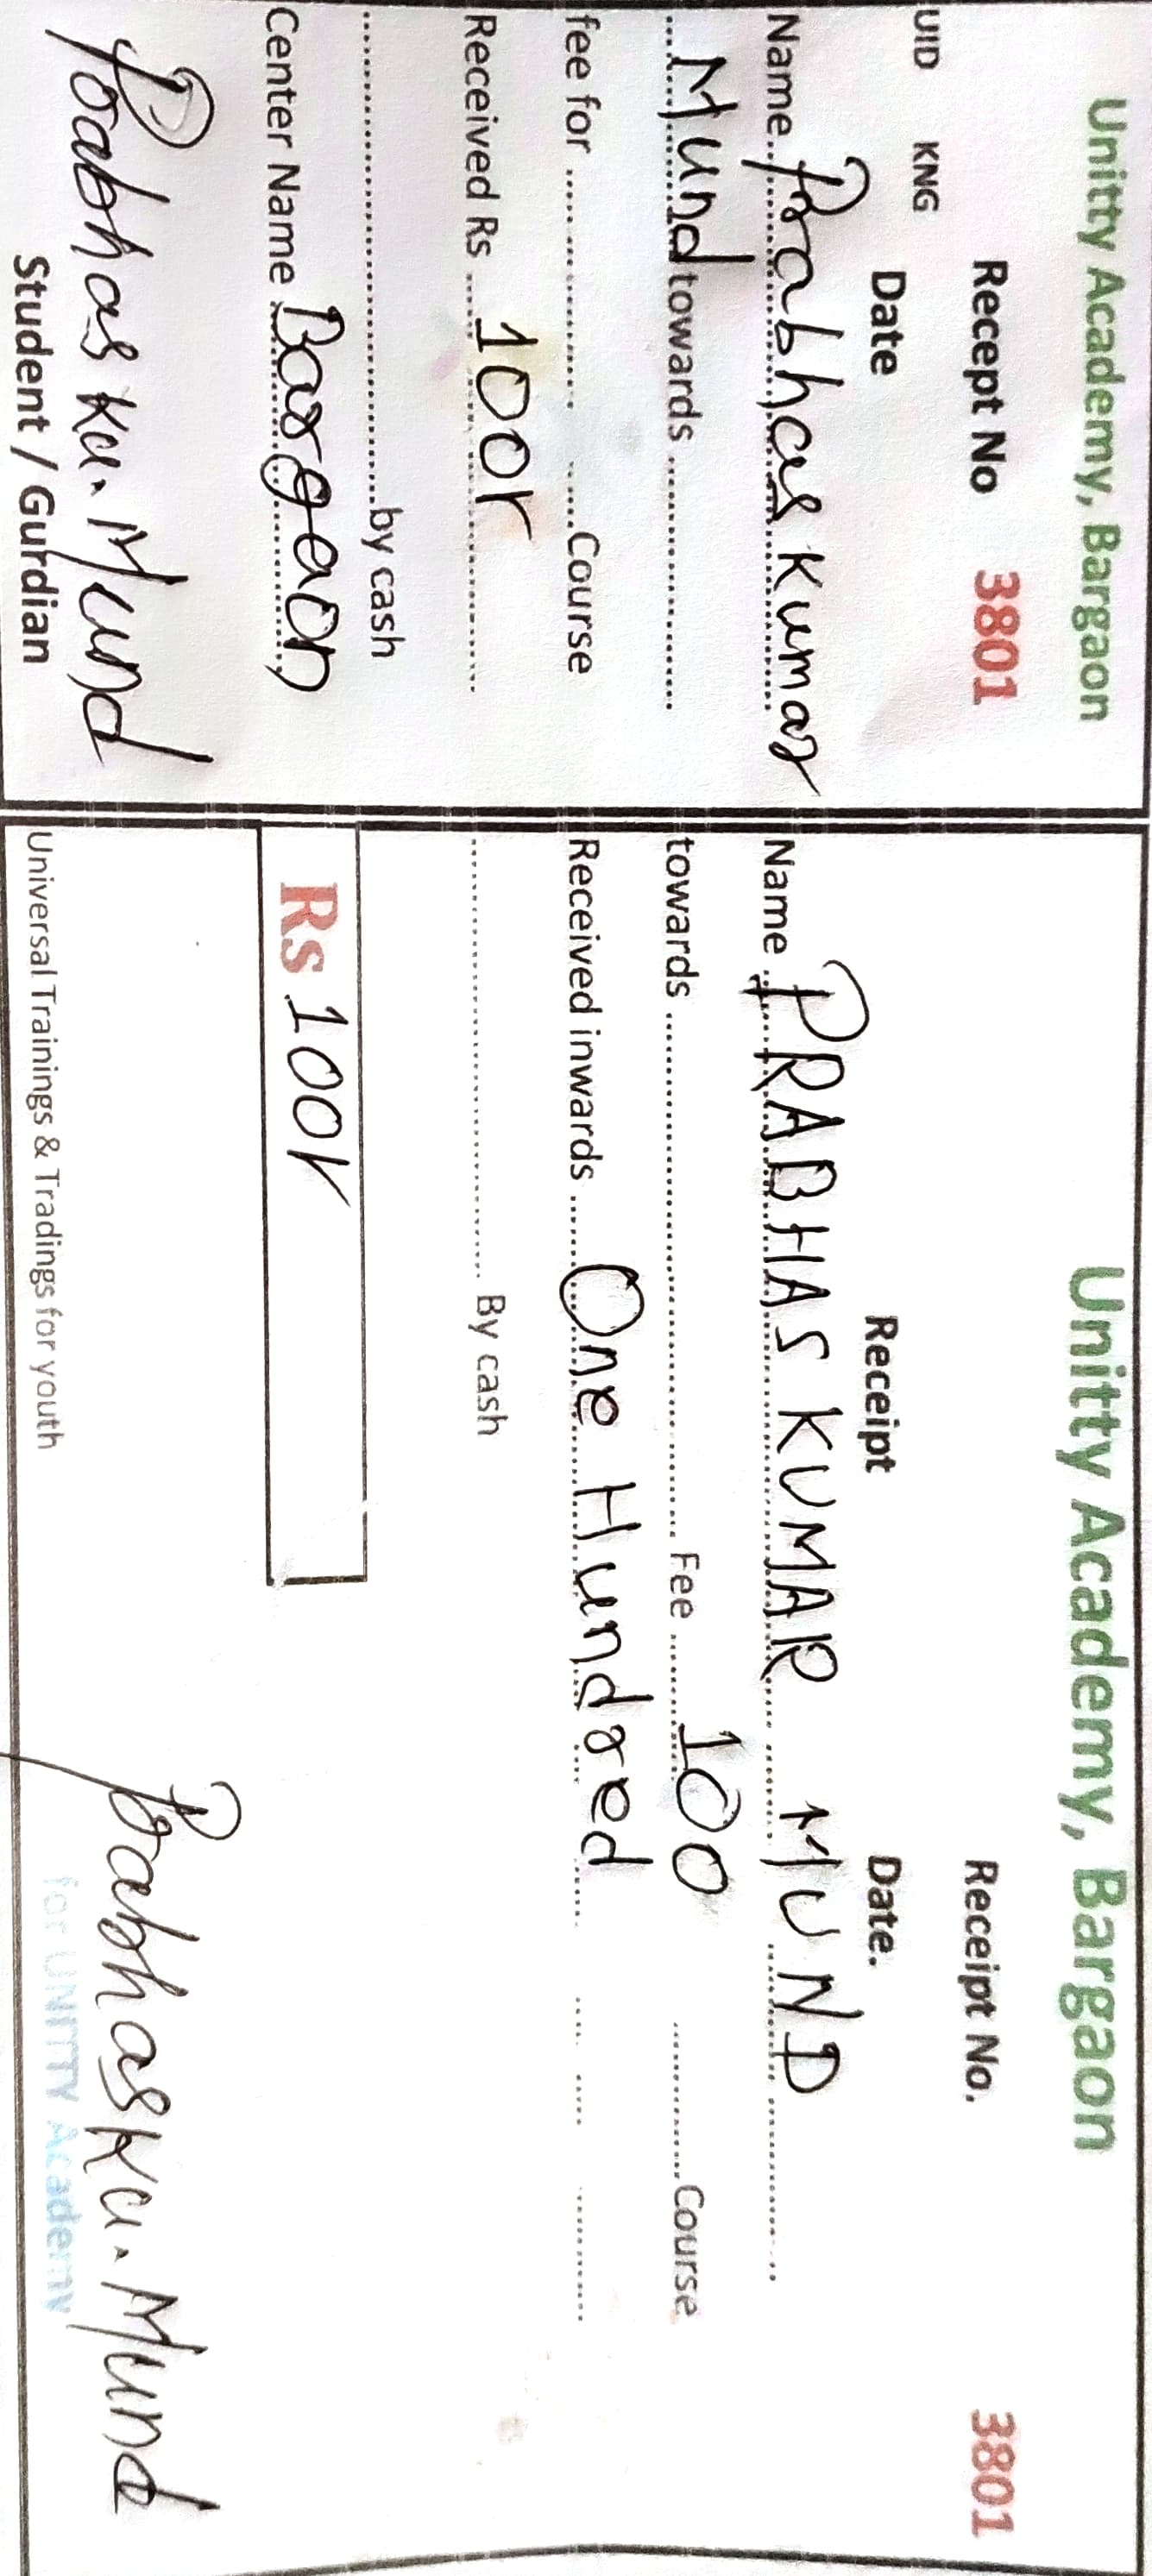 Unitty Academy, Bargaon
Recept No 3801
UID KNG Date
Name Prabhas Kumar
Mund towards ....................
fee for .................... Course
Received Rs 100/-
.................... by cash
Center Name Bargaon
Prabhas Ku. Mund
Student / Gurdian
Unitty Academy, Bargaon
Receipt No. 3801
Receipt Date.
Name PRABHAS KUMAR MUND
towards .................... Fee 100 .......... Course
Received inwards One Hundred
.................... By cash
Rs 100/-
Prabhas Ku. Mund
for UNITTY Academy
Universal Trainings & Tradings for youth